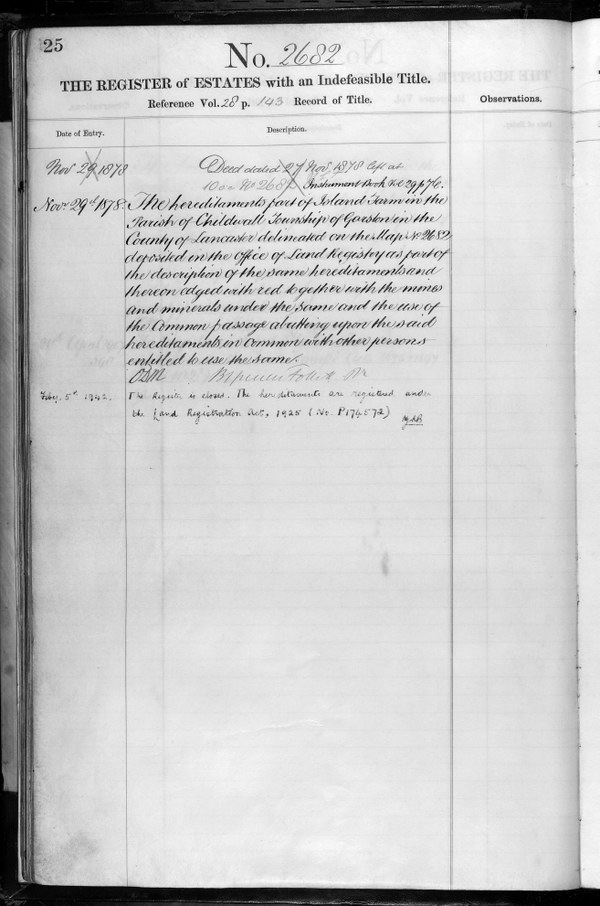 25
No. 2682
THE REGISTER of ESTATES with an Indefeasible Title.
Reference Vol. 28 p. 143 Record of Title.
Observations.
Date of Entry.
Description.
Nov 29 1878
Deed dated 27 Nov 1878 left at
No 2682 Instrument Book Vol 29 p 76.
Novr 29th 1878.
The hereditaments part of Island Farm in the
Parish of Childwall Township of Garston in the
County of Lancaster delineated on the Map No 2682
deposited in the Office of Land Registry as part of
the description of the same hereditaments and
thereon edged with red together with the mines
and minerals under the same and the use of
the Common passage abutting upon the said
hereditaments in common with other persons
entitled to use the same.
Follett
Feby. 5th 1942.
The Register is closed. The hereditaments are registered under
the Land Registration Act, 1925 (No. P174572)